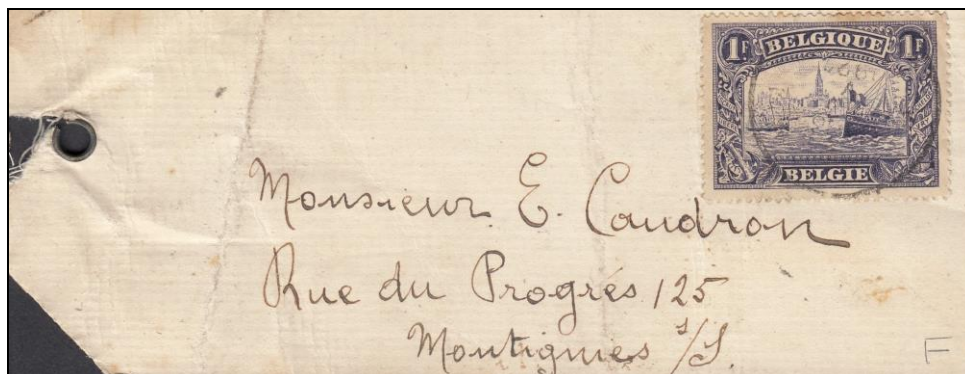 1F BELGIQUE 1F
BELGIE
Monsieur E. Caudron
Rue du Progrès 125
Montignies s/S.
F